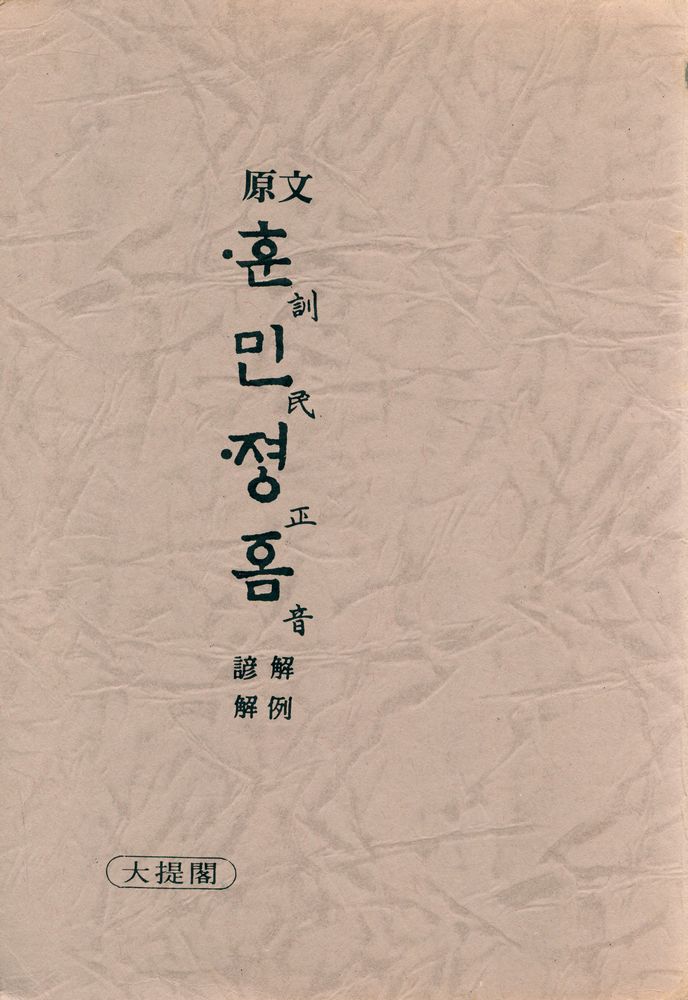 原文
·훈訓민民·졍正ᅙᅳᆷ音
解例
諺解
大提閣